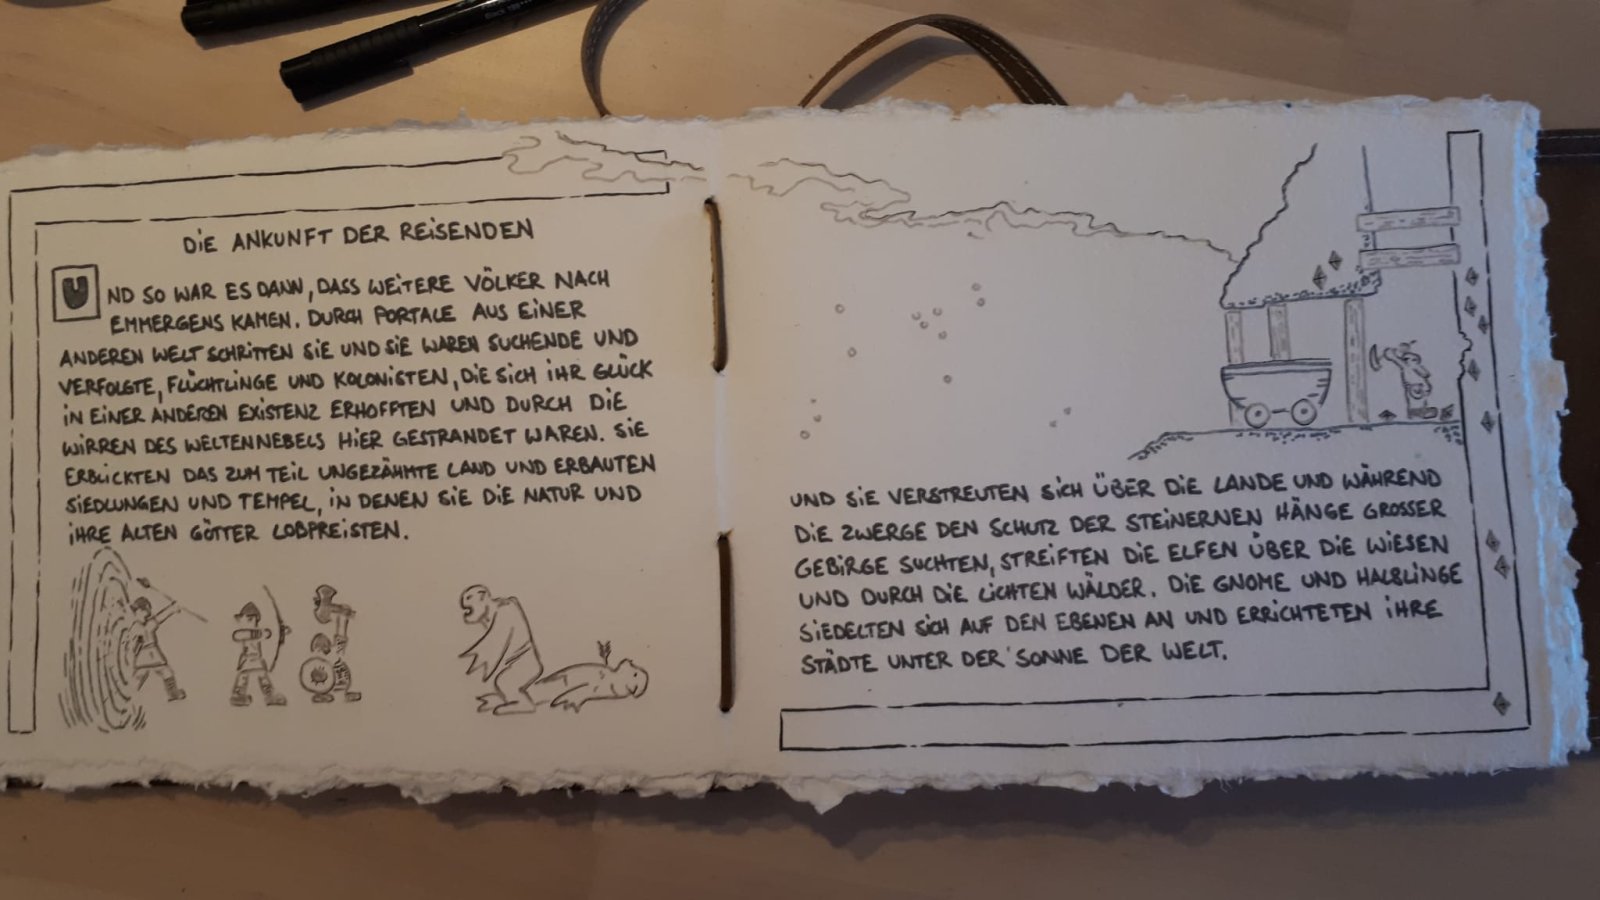 DIE ANKUNFT DER REISENDEN
UND SO WAR ES DANN, DASS WEITERE VÖLKER NACH
EMMERGENS KAMEN. DURCH PORTALE AUS EINER
ANDEREN WELT SCHRITTEN SIE UND SIE WAREN SUCHENDE UND
VERFOLGTE, FLÜCHTLINGE UND KOLONISTEN, DIE SICH IHR GLÜCK
IN EINER ANDEREN EXISTENZ ERHOFFTEN UND DURCH DIE
WIRREN DES WELTENNEBELS HIER GESTRANDET WAREN. SIE
ERBLICKTEN DAS ZUM TEIL UNGEZÄHMTE LAND UND ERBAUTEN
SIEDLUNGEN UND TEMPEL, IN DENEN SIE DIE NATUR UND
IHRE ALTEN GÖTTER LOBPREISTEN.
UND SIE VERSTREUTEN SICH ÜBER DIE LANDE UND WÄHREND
DIE ZWERGE DEN SCHUTZ DER STEINERNEN HÄNGE GROSSER
GEBIRGE SUCHTEN, STREIFTEN DIE ELFEN ÜBER DIE WIESEN
UND DURCH DIE LICHTEN WÄLDER. DIE GNOME UND HALBLINGE
SIEDELTEN SICH AUF DEN EBENEN AN UND ERRICHTETEN IHRE
STÄDTE UNTER DER SONNE DER WELT.